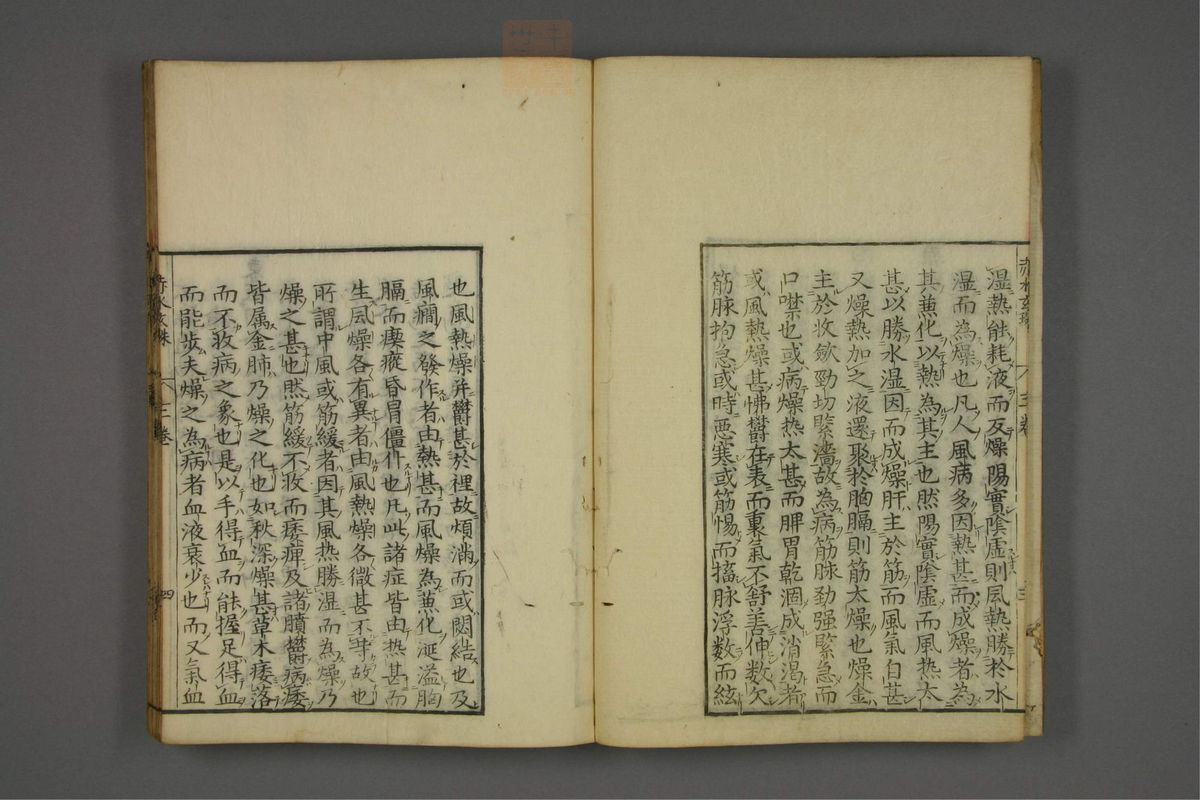 湿熱能耗液而反燥陽實陰虛則风熱勝於水
湿而為燥也凡人風病多因熱甚而成燥者為
其兼化以熱為其主也然陽實陰虛而風热太
甚以勝水湿因而成燥肝主於筋而風氣自甚
又燥熱加之液還聚於胸膈則筋太燥也燥金
主於收歛勁切緊濇故為病筋脉勁强緊急而
口噤也或病燥热太甚而脾胃乾涸成消渴者
或風熱燥甚怫欝在表而裏氣不舒善伸数欠
筋脉拘急或時悪寒或筋惕而搐脉浮数而絃
也風熱燥并欝甚於裡故煩滿而或閟結也及
風癇之發作者由熱甚而風燥為兼化涎溢胸
膈而瘈瘲昏冒僵仆也凡此諸症皆由热甚而
生风燥各有異者由風熱燥各微甚不等故也
所謂中風或筋緩者因其風热勝湿而為燥乃
燥之甚也然筋緩不收而痿痺及諸膹欝病痿
皆属金肺乃燥之化也如秋深燥甚草木痿落
而不收病之象也是以手得血而能握足得血
而能步夫燥之為病者血液衰少也而又氣血
赤水玄珠
三卷
三
赤水玄珠
三卷
四